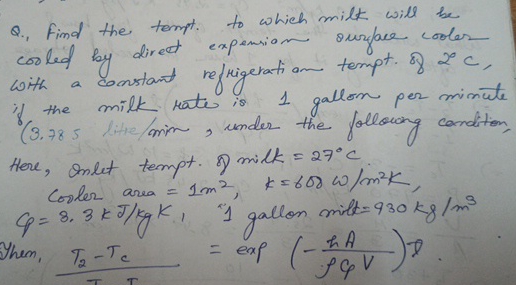 Q., Find the tempt. to which milk will be
cooled by direct expension surface cooler
with a constant refrigeration tempt. of 2°C,
if the milk rate is 1 gallon per minute
(3.785 litre/min, under the following conditon,
Here, Inlet tempt. of milk = 27°C.
Cooler area = 1m², k = 600 W/m²K,
Cp = 3.3 kJ/kg K, "1 gallon milk = 930 kg/m³
Then, T₂ - Tc = exp (- hA / ρ Cp V)